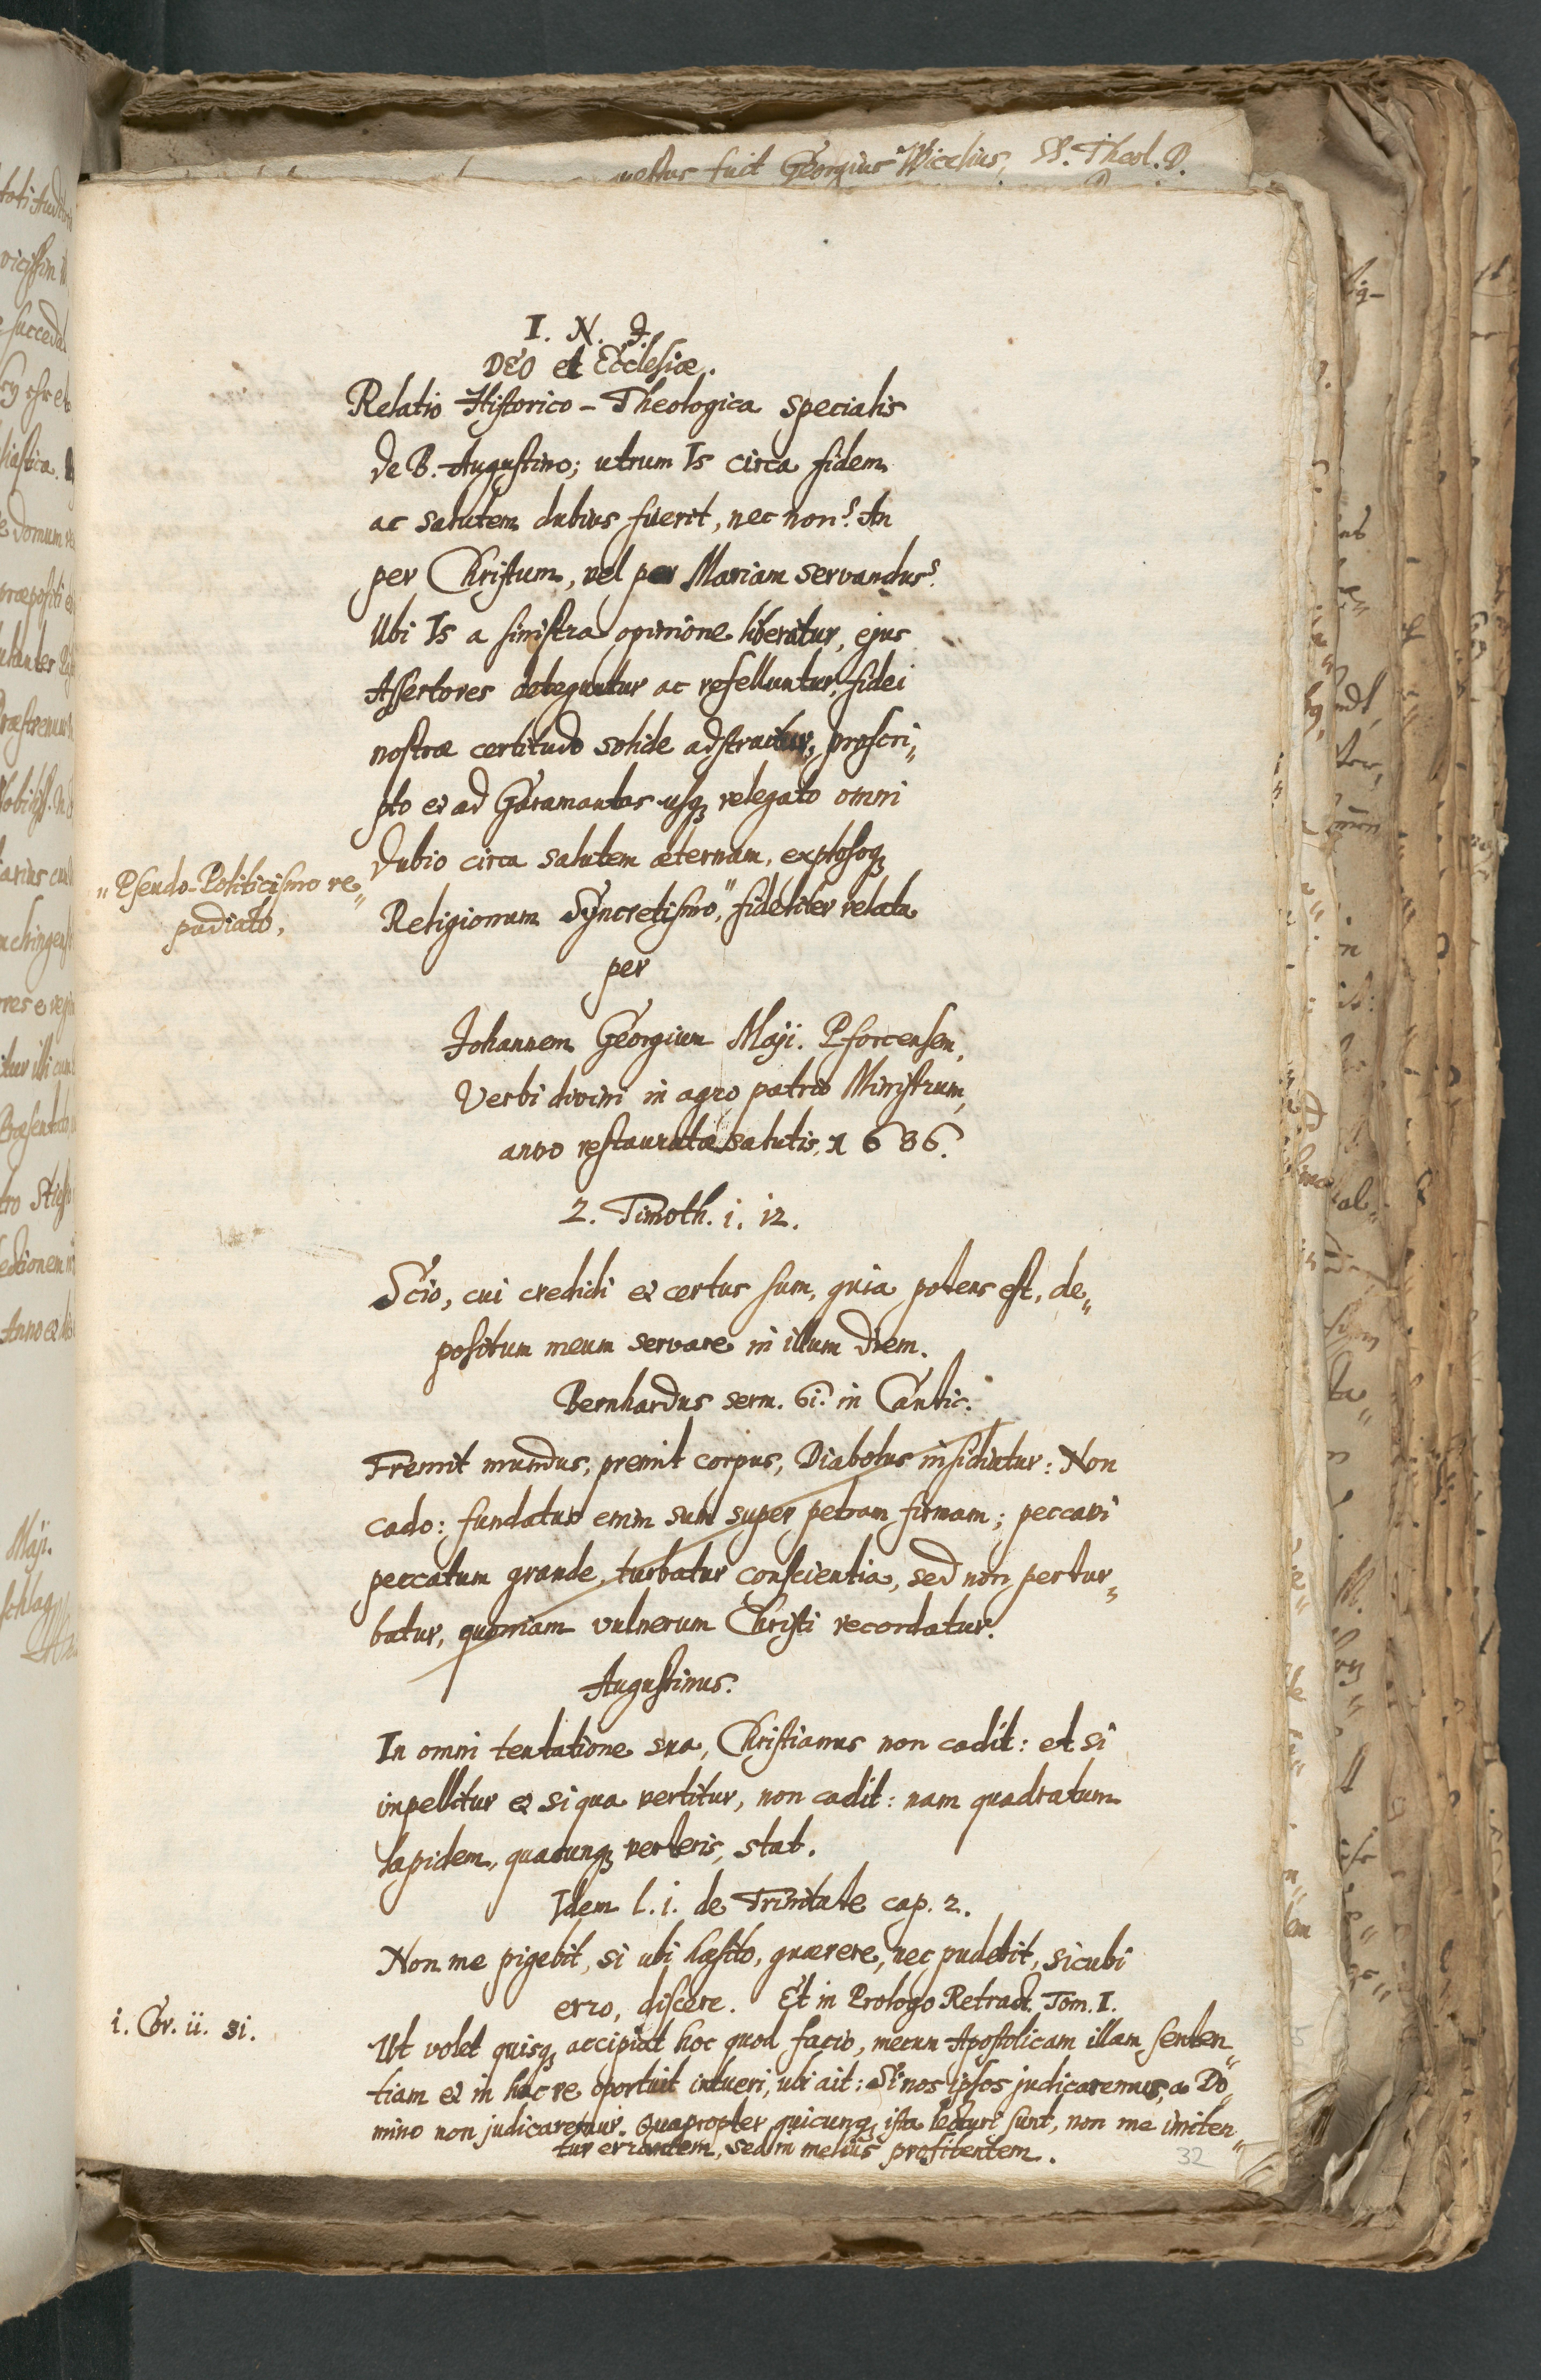 nestus fuit Georgius Wicelius, SS. Theol. D.
I. N. J.
DEO et Ecclesiæ.
Relatio Historico-Theologica specialis
de B. Augustino; utrum Is circa fidem
ac salutem dubius fuerit, nec non? An
per Christum, vel per Mariam servandus?
Ubi Is a sinistra opinione liberatur, ejus
Assertores deteguntur ac refelluntur, fidei
nostræ certitudo solide adstruitur, proscri„
pto et ad Garamantas usq; relegato omni
dubio circa salutem æternam, explosoq;
„Pseudo-Politicismo re„
pudiato,
Religionum Syncretismo,“ fideliter relata
per
Johannem Georgium Maji. Pforcensem,
Verbi divini in agro patrio Ministrum,
anno restauratæ salutis, 1686.
2. Timoth. i. 12.
Scio, cui credidi et certus sum, quia potens est, de„
positum meum servare in illum diem.
Bernhardus serm. 61. in Cantic.
Fremit mundus, premit corpus, Diabolus insidiatur: Non
cado: fundatus enim sum super petram firmam; peccavi
peccatum grande, turbatur conscientia, sed non pertur„
batur, quoniam vulnerum Christi recordatur.
Augustinus.
In omni tentatione sua, Christianus non cadit: et si
inpellitur et si qua vertitur, non cadit: nam quadratum
lapidem, quacunq; verteris, stat.
Idem l. i. de Trinitate cap. 2.
Non me pigebit, si ubi hæsito, quærere, nec pudebit, sicubi
erro, discere. Et in Prologo Retract. Tom. I.
i. Cor. ii. 31.
Ut volet quisq; accipiat hoc quod facio, mecum Apostolicam illam senten„
tiam et in hac re oportuit intueri, ubi ait: Si nos ipsos judicaremus, a Do„
mino non judicaremur. Quapropter quicunq; ista lecturi sunt, non me imiten„
tur errantem, sed in melius profitentem.
32